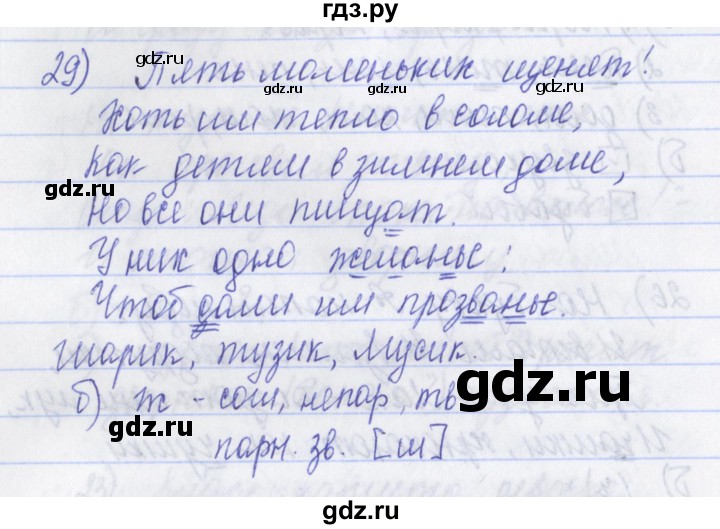 гдз.ру
29) Пять маленьких щенят!
gdz.ru gdz.ru gdz.ru gdz.ru
Хоть им тепло в соломе,
Как детям в зимнем доме,
gdz.ru
Но все они пищат.
gdz.ru
У них одно желанье:
Чтоб дали им прозванье.
gdz.ru
Шарик, Тузик, Мусик.
gdz.ru
б) ж - согл, непар, тв
gdz.ru
парн. зв. [ш]